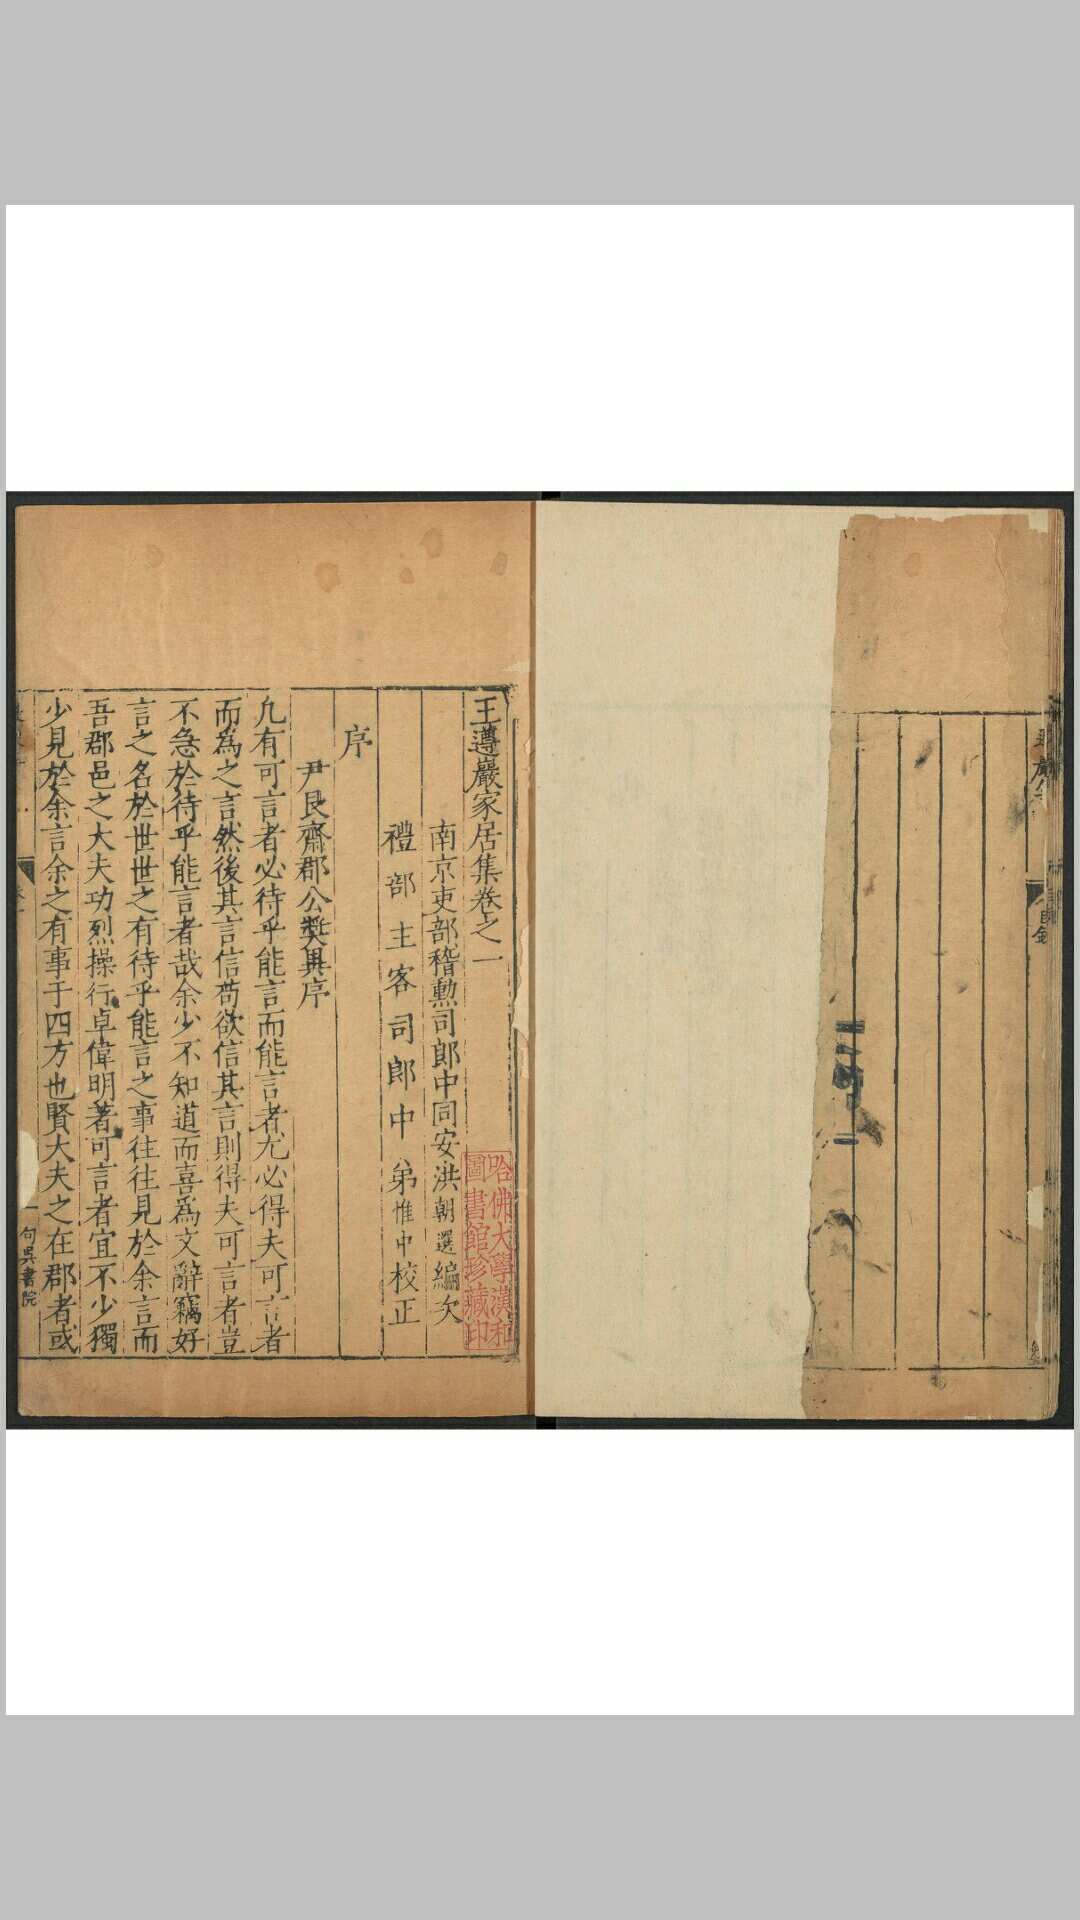 目錄
王遵巖家居集卷之一
南京吏部稽勲司郎中同安洪朝選編次
禮部主客司郎中弟惟中校正
序
尹艮齋郡公奬異序
凢有可言者必待乎能言而能言者尤必得夫可言者
而爲之言然後其言信苟欲信其言則得夫可言者豈
不急於待乎能言者哉余少不知道而喜爲文辭竊好
言之名於世世之有待乎能言之事往往見於余言而
吾郡邑之大夫功烈操行卓偉明著可言者宜不少獨
少見於余言余之有事于四方也賢大夫之在郡者或
一
句吳書院
哈佛大學漢和
圖書館珍藏印